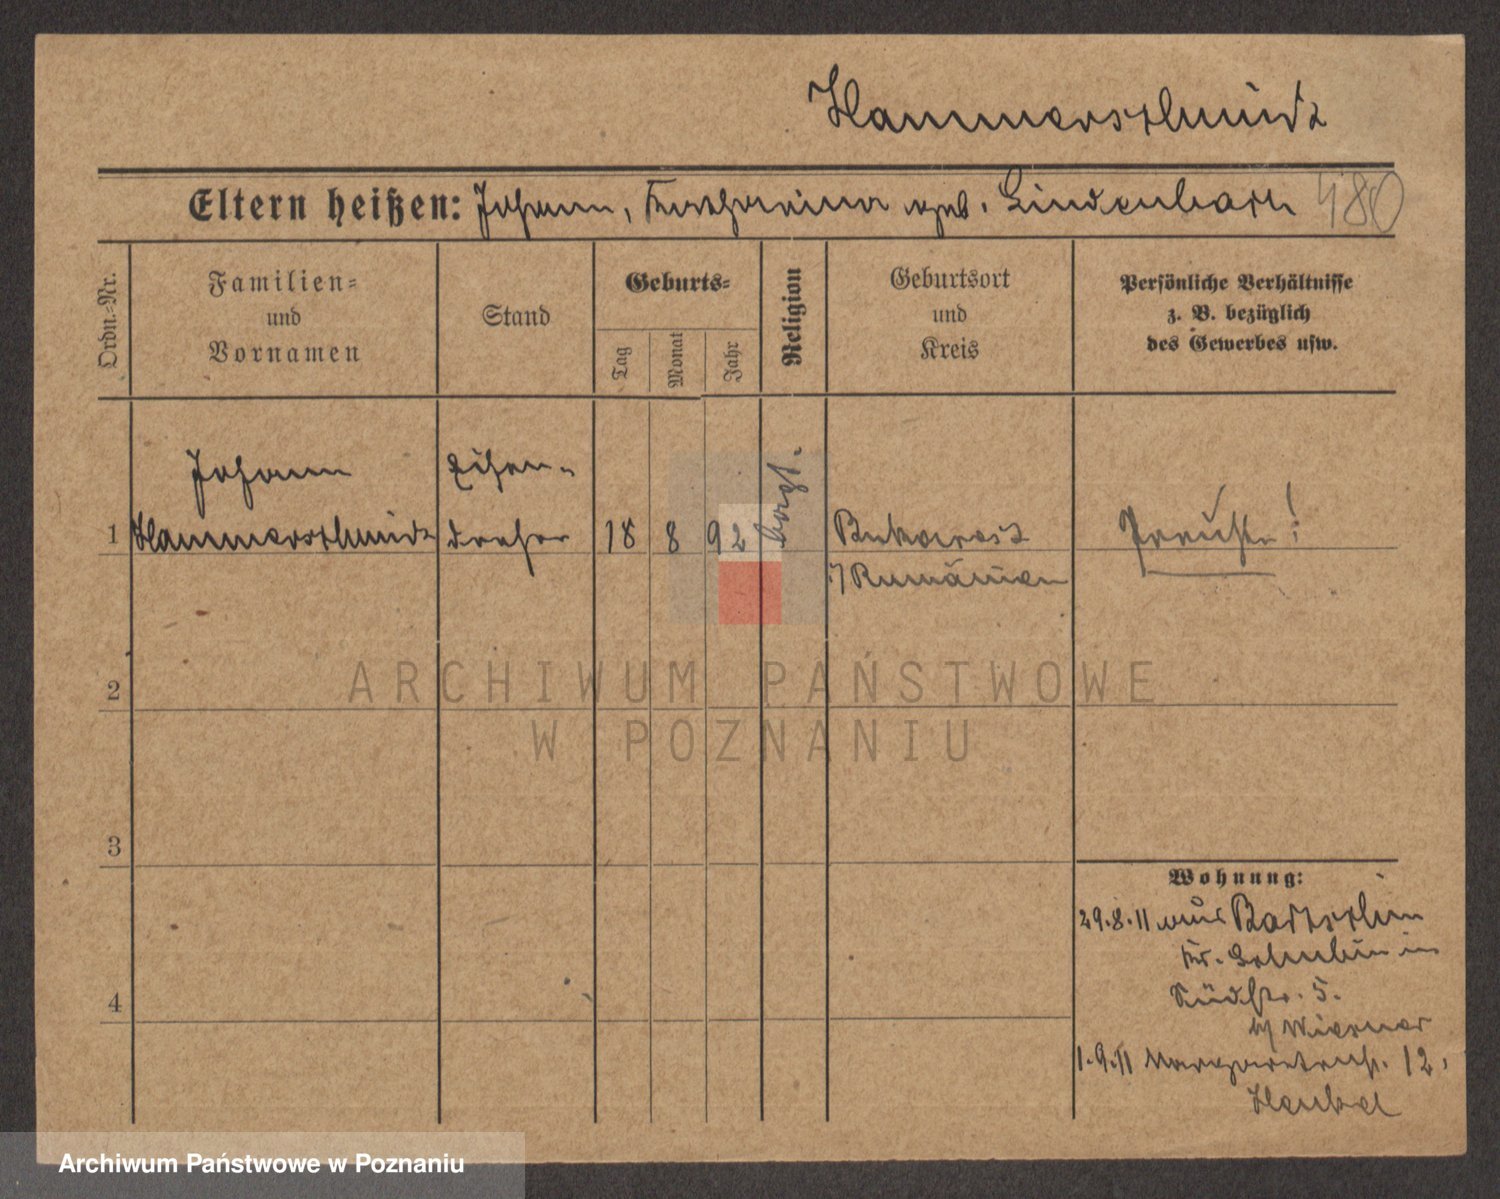 Hammerschmidt
Eltern heißen: Johann, Katharina geb. Lindenbach 480
Ordn.-Nr.
Familien-
und
Vornamen
Stand
Geburts-
Tag
Monat
Jahr
Religion
Geburtsort
und
Kreis
Persönliche Verhältnisse
z. B. bezüglich
des Gewerbes usw.
Johann
Eisen-
1 Hammerschmidt dreher 18 8 92 Bukarest Preuße!
i/ Rumänien
2
3
4
Wohnung:
29.8.11 aus Bartschin
Kr. Schubin in
Südstr. 5.
b/ Wiesner
1.9.11 Margaretenstr. 12,
ARCHIWUM PAŃSTWOWE
W POZNANIU
Archiwum Państwowe w Poznaniu